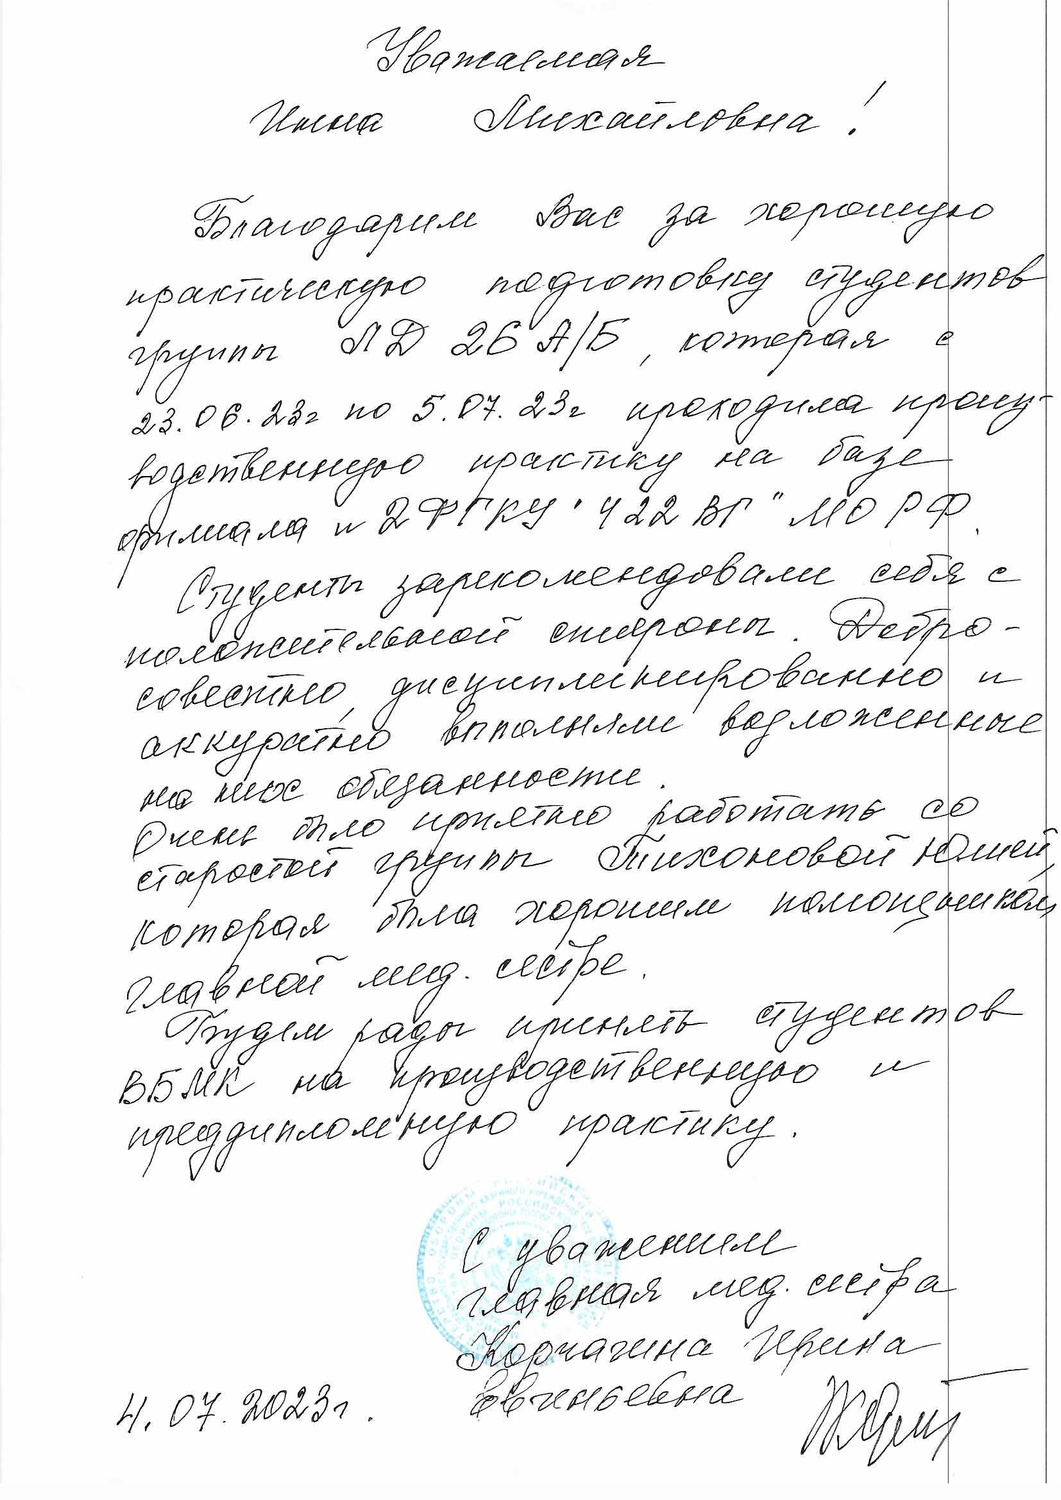 Уважаемая
Инна Михайловна!
Благодарим Вас за хорошую
практическую подготовку студентов
группы ЛД 26 А/Б, которая с
23.06.23г по 5.07.23г проходила произ-
водственную практику на базе
филиала N 2 ФГКУ "422 ВГ" МО РФ.
Студенты зарекомендовали себя с
положительной стороны. Добро-
совестно, дисциплинированно и
аккуратно выполняли возложенные
на них обязанности.
Очень было приятно работать со
старостой группы Тихоновой Юлией,
которая была хорошим помощником
главной мед. сестре.
Будем рады принять студентов
ВБМК на производственную и
преддипломную практику.
С уважением
главная мед. сестра
Корчагина Ирина
Евгеньевна
4.07.2023г.